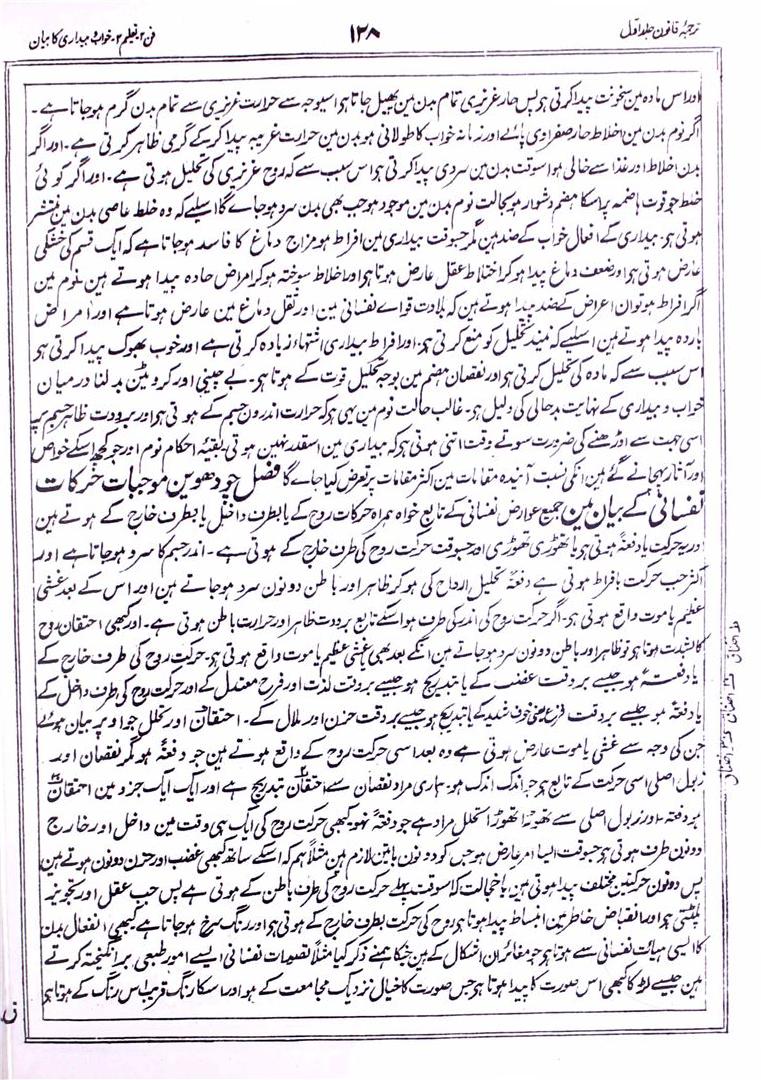 ترجمۂ قانون جلد اوّل
۱۲۸
فن ۲۔ تعلیم ۲۔ خواب و بیداری کا بیان
اور اس مادہ مین سخونت پیدا کرتی ہو پس حار غریزی تمام بدن مین پھیل جاتا ہو اسیوجہ سے حرارت غریزی سے تمام بدن گرم ہوجاتا ہے۔
اگر نوم بدن مین اخلاط حار صفراوی پائے اور زمانہ خواب کا طولانی ہو بدن مین حرارت غریبہ پیدا کرکے گرمی ظاہر کرتی ہے۔ اور اگر
بدن اخلاط اور غذا سے خالی ہو اسوقت بدن مین سردی پیدا کرتی ہو اس سبب سے کہ روح غریزی کی تحلیل ہوتی ہے۔ اور اگر کوئی
خلط جو قوت ہاضمہ پر اسکا ہضم دشوار ہو بحالت نوم بدن مین موجود ہو جب بھی بدن سرد ہوجاے گا اسلیے کہ وہ خلط عاصی بدن مین منتشر
ہوتی ہو۔ بیداری کے افعال خواب کے ضد ہین مگر جسوقت بیداری مین افراط ہو مزاج دماغ کا فاسد ہوجاتا ہے کہ ایک قسم کی خشکی
عارض ہوتی ہو اور ضعف دماغ پیدا ہوکر اختلاط عقل عارض ہوتا ہو اور اخلاط سوختہ ہوکر امراض حادہ پیدا ہوتے ہین۔ نوم مین
اگر افراط ہو تو ان اعراض کے ضد پیدا ہوتے ہین کہ بلادت قواے نفسانی مین اور ثقل دماغ مین عارض ہوتا ہے اور امراض
باردہ پیدا ہوتے ہین اسلیے کہ نیند تحلیل کو منع کرتی ہو۔ اور افراط بیداری اشتہاء زیادہ کرتی ہے اور خوب بھوک پیدا کرتی ہو
اس سبب سے کہ مادہ کی تحلیل کرتی ہو اور نقصان ہضم مین بوجہ تحلیل قوت کے ہوتا ہو۔ بے چینی اور کروٹین بدلنا درمیان
خواب و بیداری کے نہایت بدحالی کی دلیل ہو۔ غالب حالت نوم مین یہی ہو کہ حرارت اندرون جسم کے ہوتی ہو اور برودت ظاہر جسم پر
اسی جہت سے اوڑھنے کی ضرورت سوتے وقت اتنی ہوتی ہو کہ بیداری مین اسقدر نہین ہوتی۔ بقیہ احکام نوم اور جو کچھ اسکے خواص
اور آثار پہچانے گئے ہین انکی نسبت آیندہ مقامات مین اکثر مقامات پر تعرض کیا جاے گا فصل چودھوین موجبات حرکات
نفسانی کے بیان مین جمیع عوارض نفسانی کے تابع خواہ ہمراہ حرکات روح کے یا بطرف داخل یا بطرف خارج کے ہوتے ہین
اور یہ حرکت یا دفعۃً ہوتی ہو یا تھوڑی تھوڑی اور جسوقت حرکت روح کی طرف خارج کے ہوتی ہے۔ اندر جسم کا سرد ہوجاتا ہے اور
اکثر جب حرکت بافراط ہوتی ہے دفعۃً تحلیل ارواح کی ہوکر ظاہر اور باطن دونون سرد ہوجاتے ہین اور اس کے بعد غشی
عظیم یا موت واقع ہوتی ہو۔ اگر حرکت روح کی اندر کی طرف ہو اسکے تابع برودت ظاہر اور حرارت باطن ہوتی ہے۔ اور کبھی احتقان روح
کا بشدت ہوتا ہو تو ظاہر اور باطن دونون سرد ہوجاتے ہین انکے بعد بھی غشی عظیم یا موت واقع ہوتی ہو۔ حرکت روح کی طرف خارج کے
یا دفعۃً ہو جیسے بروقت غضب کے یا بتدریج ہو جیسے بروقت لذت اور فرح معتدل کے اور حرکت روح کی طرف داخل کے
یا دفعۃً ہو جیسے بروقت فزع یعنی خوف شدید کے یا بتدریج ہو جیسے بروقت حزن اور ملال کے۔ احتقان اور تحلل جو اوپر بیان ہوئے
جن کی وجہ سے غشی یا موت عارض ہوتی ہے وہ بعد اسی حرکت روح کے واقع ہوتے ہین جو دفعۃً ہو مگر نقصان اور
زبول اصلی اسی حرکت کے تابع ہو جو اندک اندک ہو۔ ہماری مراد نقصان سے احتقان بتدریج ہے اور ایک ایک جزو مین احتقان
ہو دفعۃً۔ اور زبول اصلی سے تھوڑا تھوڑا تحلل مراد ہے جو دفعۃً نہو۔ کبھی حرکت روح کی ایک ہی وقت مین داخل اور خارج
دونون طرف ہوتی ہو جسوقت ایسا امر عارض ہو جس کو دونون باتین لازم ہین مثلاً ہم کہ اسکے ساتھ کبھی غضب اور حزن دونون ہوتے ہین
پس دونون حرکتین مختلف پیدا ہوتی ہین یا خجالت کہ اسوقت پہلے حرکت روح کی طرف باطن کے ہوتی ہے پس جب عقل اور تجویز
پلٹتی ہو اور انقباض خاطر مین انبساط پیدا ہوتا ہو روح کی حرکت بطرف خارج کے ہوتی ہو اور رنگ سرخ ہوجاتا ہے کبھی انفعال بدن
کا ایسی ہیأت نفسانی سے ہوتا ہو جو مغائر ان اشکال کے ہین جنکا ہمنے ذکر کیا مثلاً تصورات نفسانی ایسے امور طبعی برانگیختہ کرتے
ہین جیسے لڑکا کبھی اس صورت کا پیدا ہوتا ہو جس صورت کا خیال نزدیک مجامعت کے ہو اور اسکا رنگ قریب اس رنگ کے ہوتا ہو